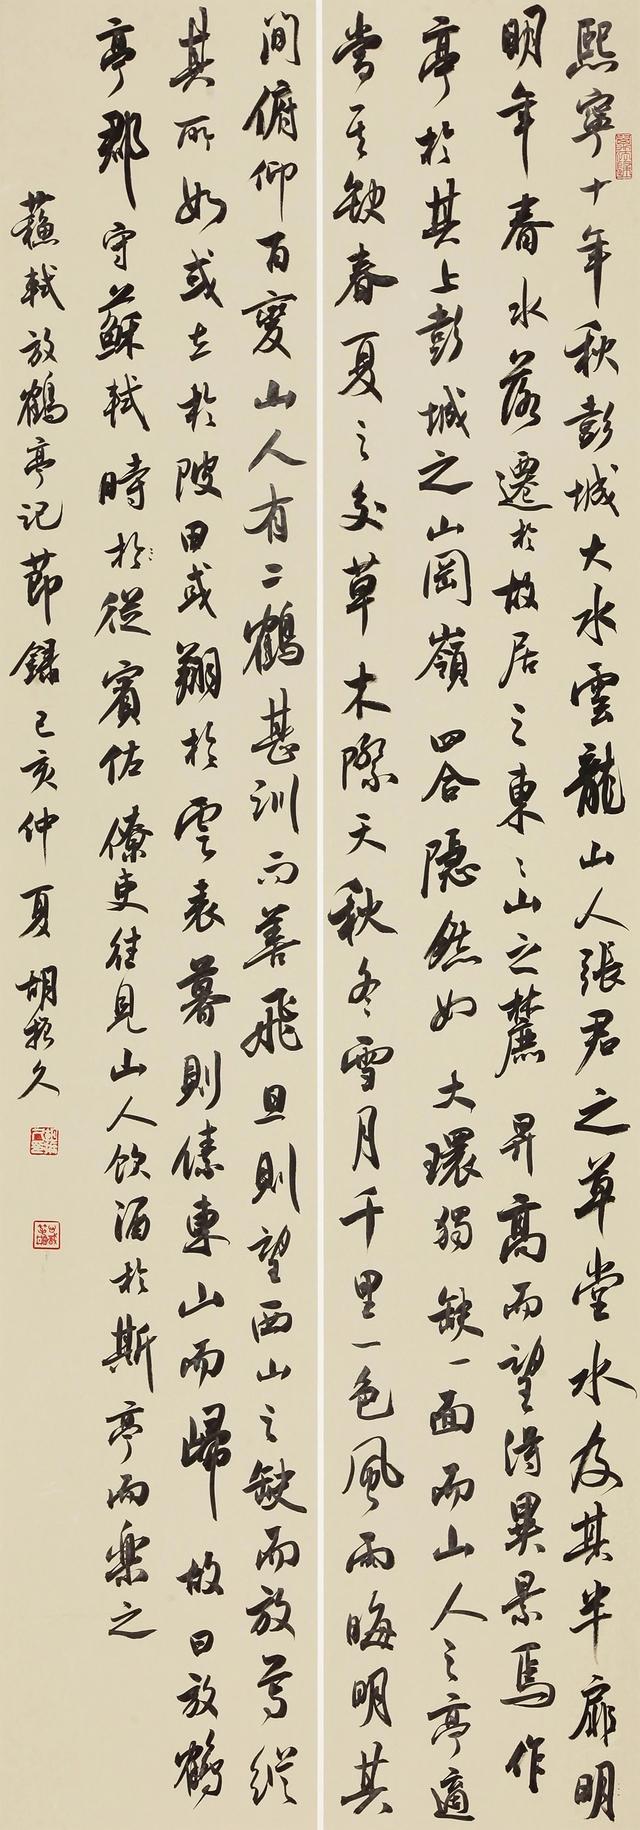 熙寧十年秋彭城大水雲龍山人張君之草堂水及其半扉明
明年春水落遷於故居之東々山之麓昇高而望得異景焉作
亭於其上彭城之山岡嶺四合隐然如大環獨缺一面而山人之亭適
當其缺春夏之交草木際天秋冬雪月千里一色風雨晦明其
間俯仰百變山人有二鶴甚訓而善飛旦則望西山之缺而放焉縱
其所如或立於陂田或翔於雲表暮則傃東山而歸故曰放鶴
亭郡守蘇軾時於從賓佐僚吏往見山人飲酒於斯亭而樂之
蘇軾放鶴亭記節錄己亥仲夏胡振久